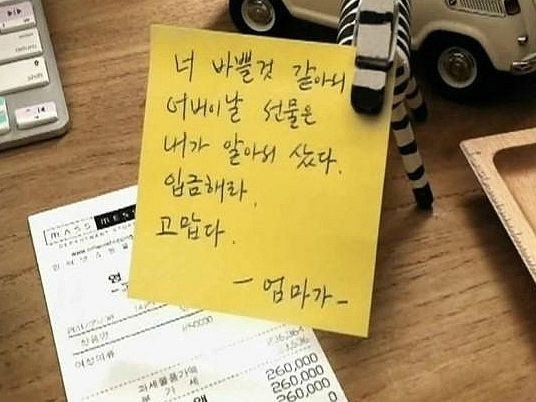 너 바쁠것 같아서
어버이날 선물은
내가 알아서 샀다.
입금해라.
고맙다.
- 엄마가 -
MASS MES
DEPARTMENT STORE
여성의류
과세물품가액
부 가 세
260,000
260,000
260,000
0